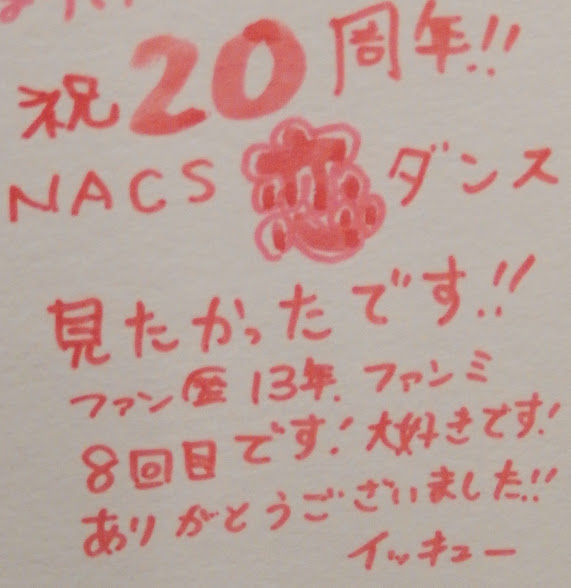 祝20周年!!
NACS 恋ダンス
見たかったです!!
ファン歴13年.ファンミ
8回目です!大好きです!
ありがとうございました!!
イッキュー